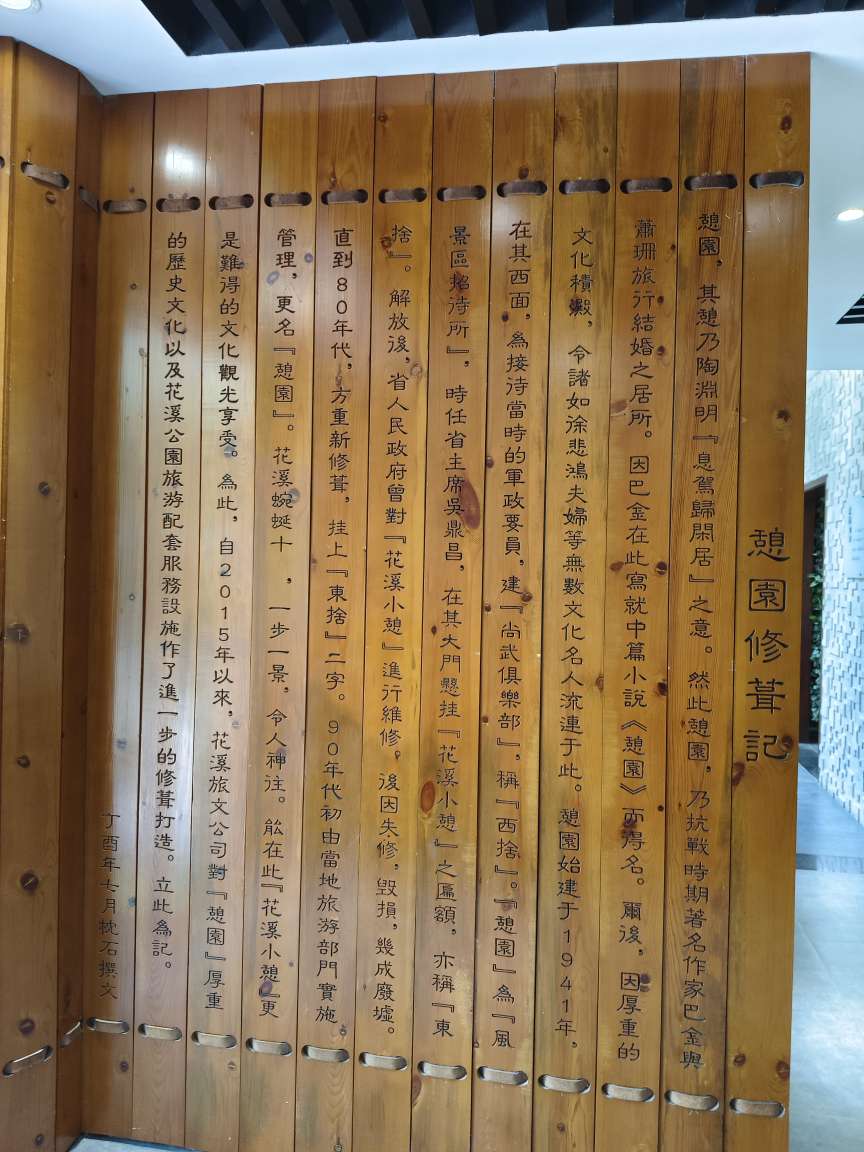 憩園修葺記
憩園，其憩乃陶淵明『息駕歸閑居』之意。然此憩園，乃抗戰時期著名作家巴金與
蕭珊旅行結婚之居所。因巴金在此寫就中篇小說《憩園》而得名。爾後，因厚重的
文化積澱，令諸如徐悲鴻夫婦等無數文化名人流連于此。憩園始建于1941年，
在其西面，為接待當時的軍政要員，建『尚武俱樂部』，稱『西捨』。『憩園』為『風
景區招待所』，時任省主席吳鼎昌，在其大門懸挂『花溪小憩』之匾額，亦稱『東
捨』。解放後，省人民政府曾對『花溪小憩』進行維修。後因失修，毀損，幾成廢墟。
直到80年代，方重新修葺，挂上『東捨』二字。90年代初由當地旅游部門實施
管理，更名『憩園』。花溪蜿蜒十，一步一景，令人神往。能在此『花溪小憩』更
是難得的文化觀光享受。為此，自2015年以來，花溪旅文公司對『憩園』厚重
的歷史文化以及花溪公園旅游配套服務設施作了進一步的修葺打造。立此為記。
丁酉年七月枕石撰文